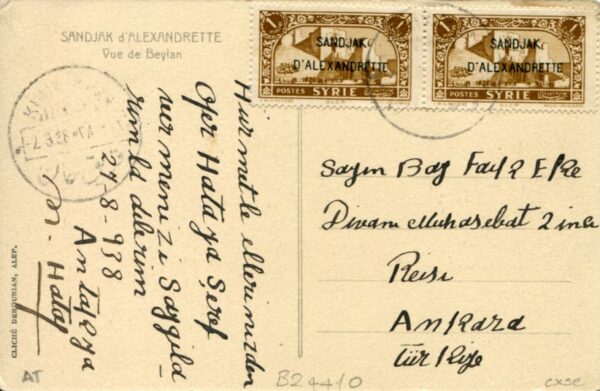 SANDJAK d'ALEXANDRETTE
Vue de Beylan
1 1
SANDJAK
D'ALEXANDRETTE
POSTES SYRIE
1 1
SANDJAK
D'ALEXANDRETTE
POSTES SYRIE
Hürmetle ellerinizden
öper Hataya Şeref
vermenizi Saygıla
rımla dilerim
27-8-938
Antakya
Hatay
Sayın Bay Faik Eke
Divanı Muhasebat 2 inci
Reisi
Ankara
Türkiye
CLICHÉ DEROUNIAN, ALEP.
AT
B24410
cxse